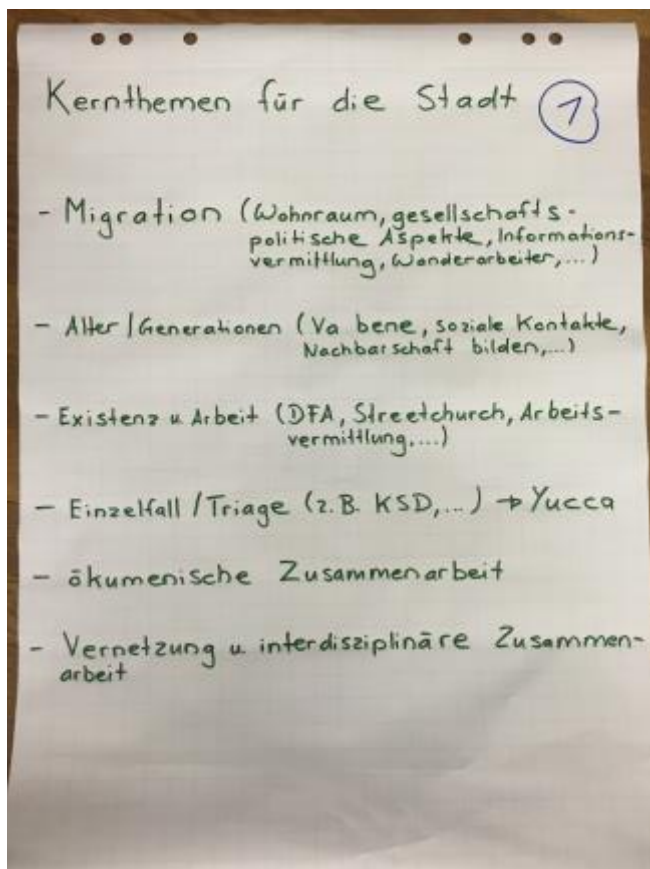 Kernthemen für die Stadt 1
- Migration (Wohnraum, gesellschafts-
politische Aspekte, Informations-
vermittlung, Wanderarbeiter,...)
- Alter / Generationen (Va bene, soziale Kontakte,
Nachbarschaft bilden,...)
- Existenz u. Arbeit (DFA, Streetchurch, Arbeits-
vermittlung,...)
- Einzelfall / Triage (z.B. KSD,...) → Yucca
- ökumenische Zusammenarbeit
- Vernetzung u. interdisziplinäre Zusammen-
arbeit